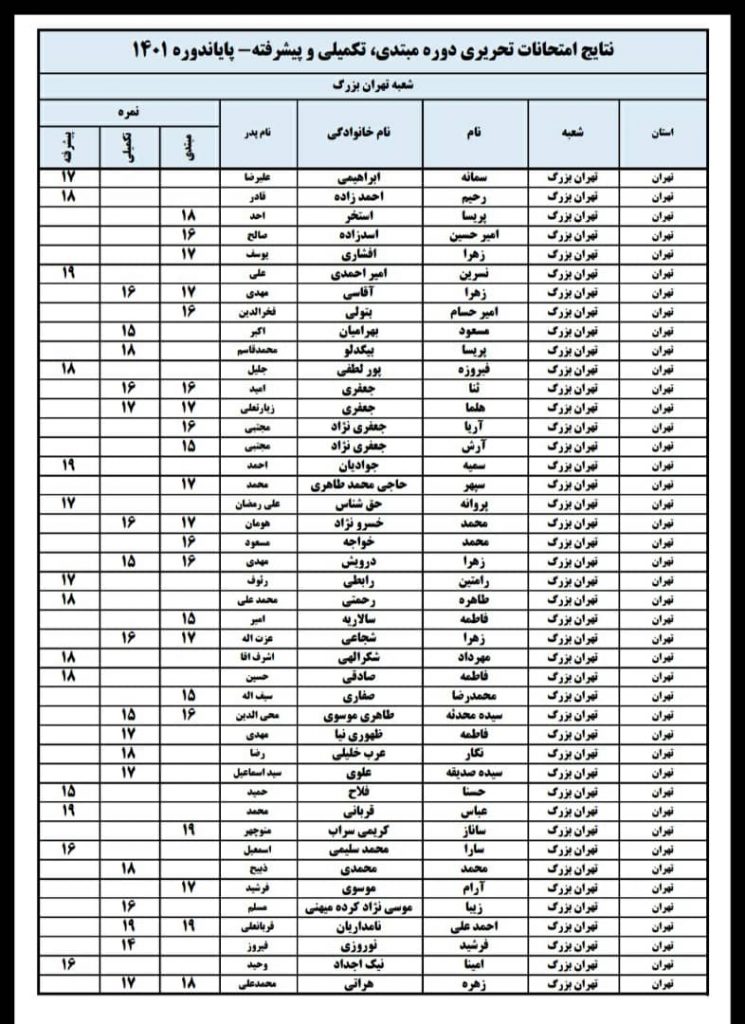 نتایج امتحانات تحریری دوره مبتدی، تکمیلی و پیشرفته- پایاندوره ۱۴۰۱
شعبه تهران بزرگ
استان شعبه نام نام خانوادگی نام پدر نمره
مبتدی تکمیلی پیشرفته
تهران تهران بزرگ سمانه ابراهیمی علیرضا ۱۷
تهران تهران بزرگ رحیم احمد زاده قادر ۱۸
تهران تهران بزرگ پریسا استخر احد ۱۸
تهران تهران بزرگ امیر حسین اسدزاده صالح ۱۶
تهران تهران بزرگ زهرا افشاری یوسف ۱۷
تهران تهران بزرگ نسرین امیر احمدی علی ۱۹
تهران تهران بزرگ زهرا آقاسی مهدی ۱۷ ۱۶
تهران تهران بزرگ امیر حسام بتولی فخرالدین ۱۶
تهران تهران بزرگ مسعود بهرامیان اکبر ۱۵
تهران تهران بزرگ پریسا بیگدلو محمدقاسم ۱۸
تهران تهران بزرگ فیروزه پور لطفی جلیل ۱۸
تهران تهران بزرگ ثنا جعفری امید ۱۶ ۱۶
تهران تهران بزرگ هلما جعفری زیارتعلی ۱۷ ۱۷
تهران تهران بزرگ آریا جعفری نژاد مجتبی ۱۶
تهران تهران بزرگ آرش جعفری نژاد مجتبی ۱۵
تهران تهران بزرگ سمیه جوادیان احمد ۱۹
تهران تهران بزرگ سپهر حاجی محمد طاهری محمد ۱۷
تهران تهران بزرگ پروانه حق شناس علی رمضان ۱۷
تهران تهران بزرگ محمد خسرو نژاد هومان ۱۷ ۱۶
تهران تهران بزرگ محمد خواجه مسعود ۱۶
تهران تهران بزرگ زهرا درویش مهدی ۱۶ ۱۵
تهران تهران بزرگ رامتین رابطی رئوف ۱۷
تهران تهران بزرگ طاهره رحمتی محمد علی ۱۸
تهران تهران بزرگ فاطمه سالاریه امیر ۱۵
تهران تهران بزرگ زهرا شجاعی عزت اله ۱۷ ۱۶
تهران تهران بزرگ مهرداد شکرالهی اشرف اقا ۱۸
تهران تهران بزرگ فاطمه صادقی حسین ۱۸
تهران تهران بزرگ محمدرضا صفاری سیف اله ۱۵
تهران تهران بزرگ سیده محدثه طاهری موسوی محی الدین ۱۶ ۱۵
تهران تهران بزرگ فاطمه ظهوری نیا مهدی ۱۷
تهران تهران بزرگ نگار عرب خلیلی رضا ۱۸
تهران تهران بزرگ سیده صدیقه علوی سید اسماعیل ۱۷
تهران تهران بزرگ حسنا فلاح حمید ۱۵
تهران تهران بزرگ عباس قربانی محمد ۱۹
تهران تهران بزرگ ساناز کریمی سراب منوچهر ۱۹
تهران تهران بزرگ سارا محمد سلیمی اسمعیل ۱۶
تهران تهران بزرگ محمد محمدی ذبیح ۱۸
تهران تهران بزرگ آرام موسوی فرشید ۱۷
تهران تهران بزرگ زیبا موسی نژاد کرده میهنی مسلم ۱۶
تهران تهران بزرگ احمد علی نامداریان قربانعلی ۱۹ ۱۹
تهران تهران بزرگ فرشید نوروزی فیروز ۱۴
تهران تهران بزرگ امینا نیک اجداد وحید ۱۶
تهران تهران بزرگ زهره هراتی محمدعلی ۱۸ ۱۷